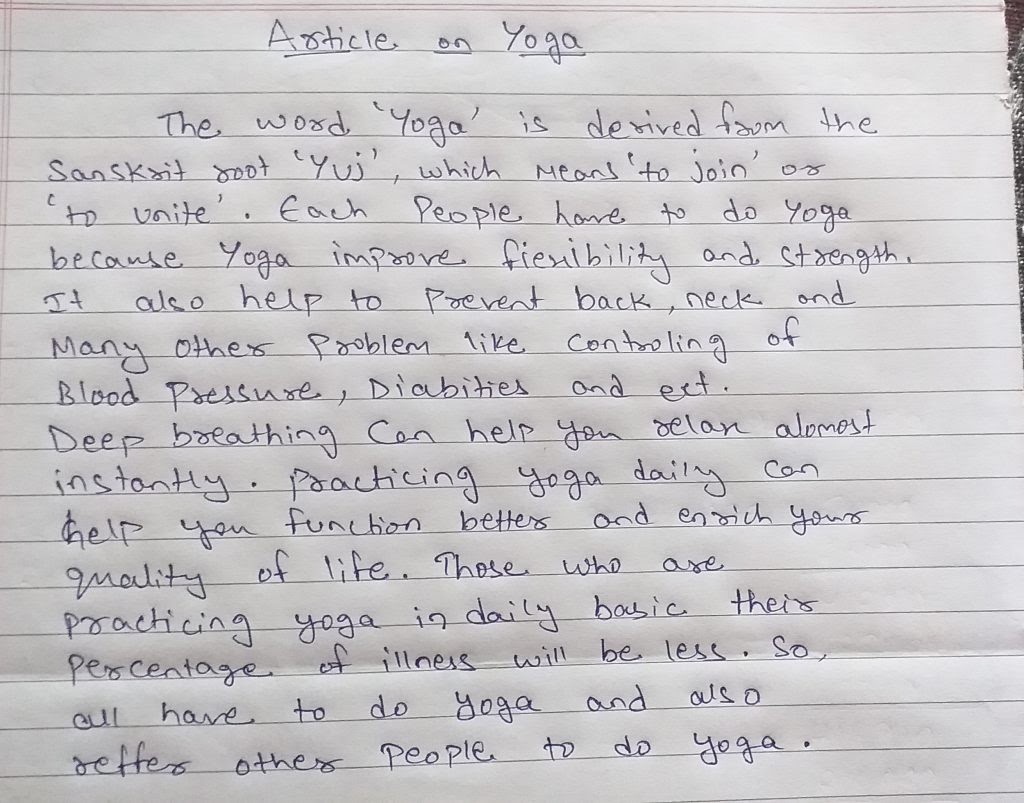 Article on Yoga
The word 'Yoga' is derived from the
Sanskrit root 'Yuj', which Means 'to join' or
'to unite'. Each People have to do Yoga
because Yoga improve flexibility and strength.
It also help to Prevent back, neck and
Many Other Problem like Controling of
Blood Pressure, Diabities and ect.
Deep breathing Can help you relax alomost
instantly. Practicing yoga daily Can
help you function better and enrich your
quality of life. Those who are
practicing yoga in daily basic their
Percentage of illness will be less. So,
all have to do yoga and also
reffer other People to do yoga.